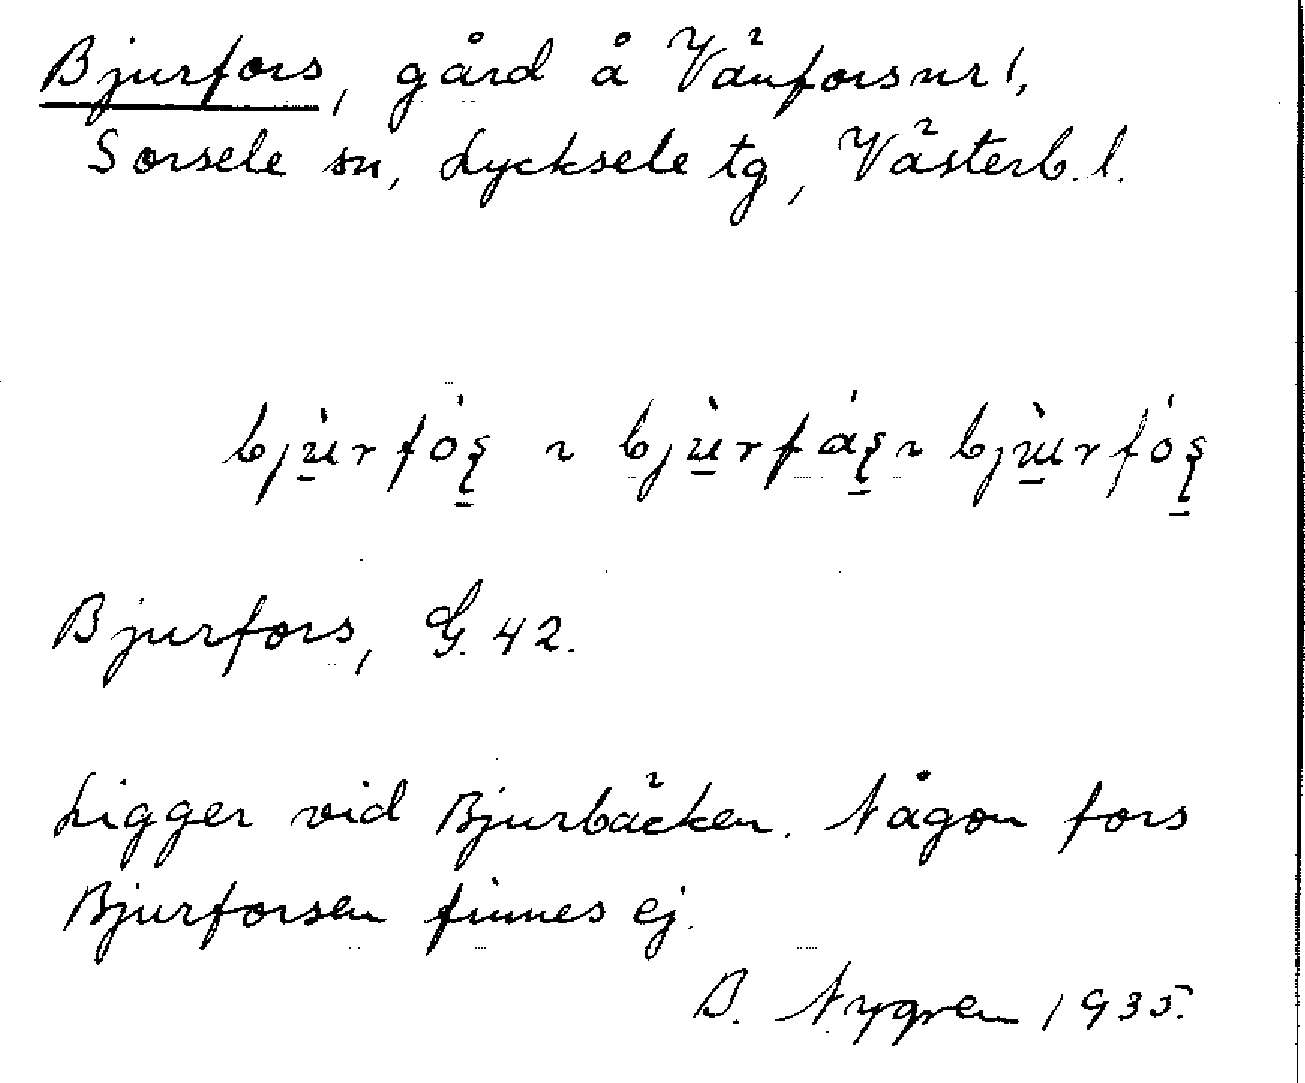 Bjurfors, gård å Vänforsnr 1,
Sorsele sn, Lycksele tg, Västerb. l.
bjù̱rfó̱ʂ ~ bjù̱rfáʂ̱ ~ bjɯ̱̀rfóʂ̱
Bjurfors, G. 42.
Ligger vid Bjurbäcken. Någon fors
Bjurforsen finnes ej.
B. Nygren 1935.